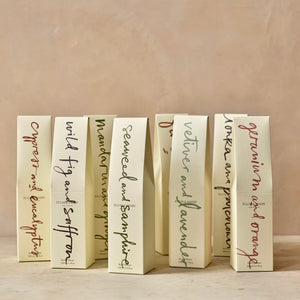 cypress and eucalyptus
wild fig and saffron
mandarin and
seaweed and samphire
vetiver and lavender
tonka and patchouli
geranium and orange